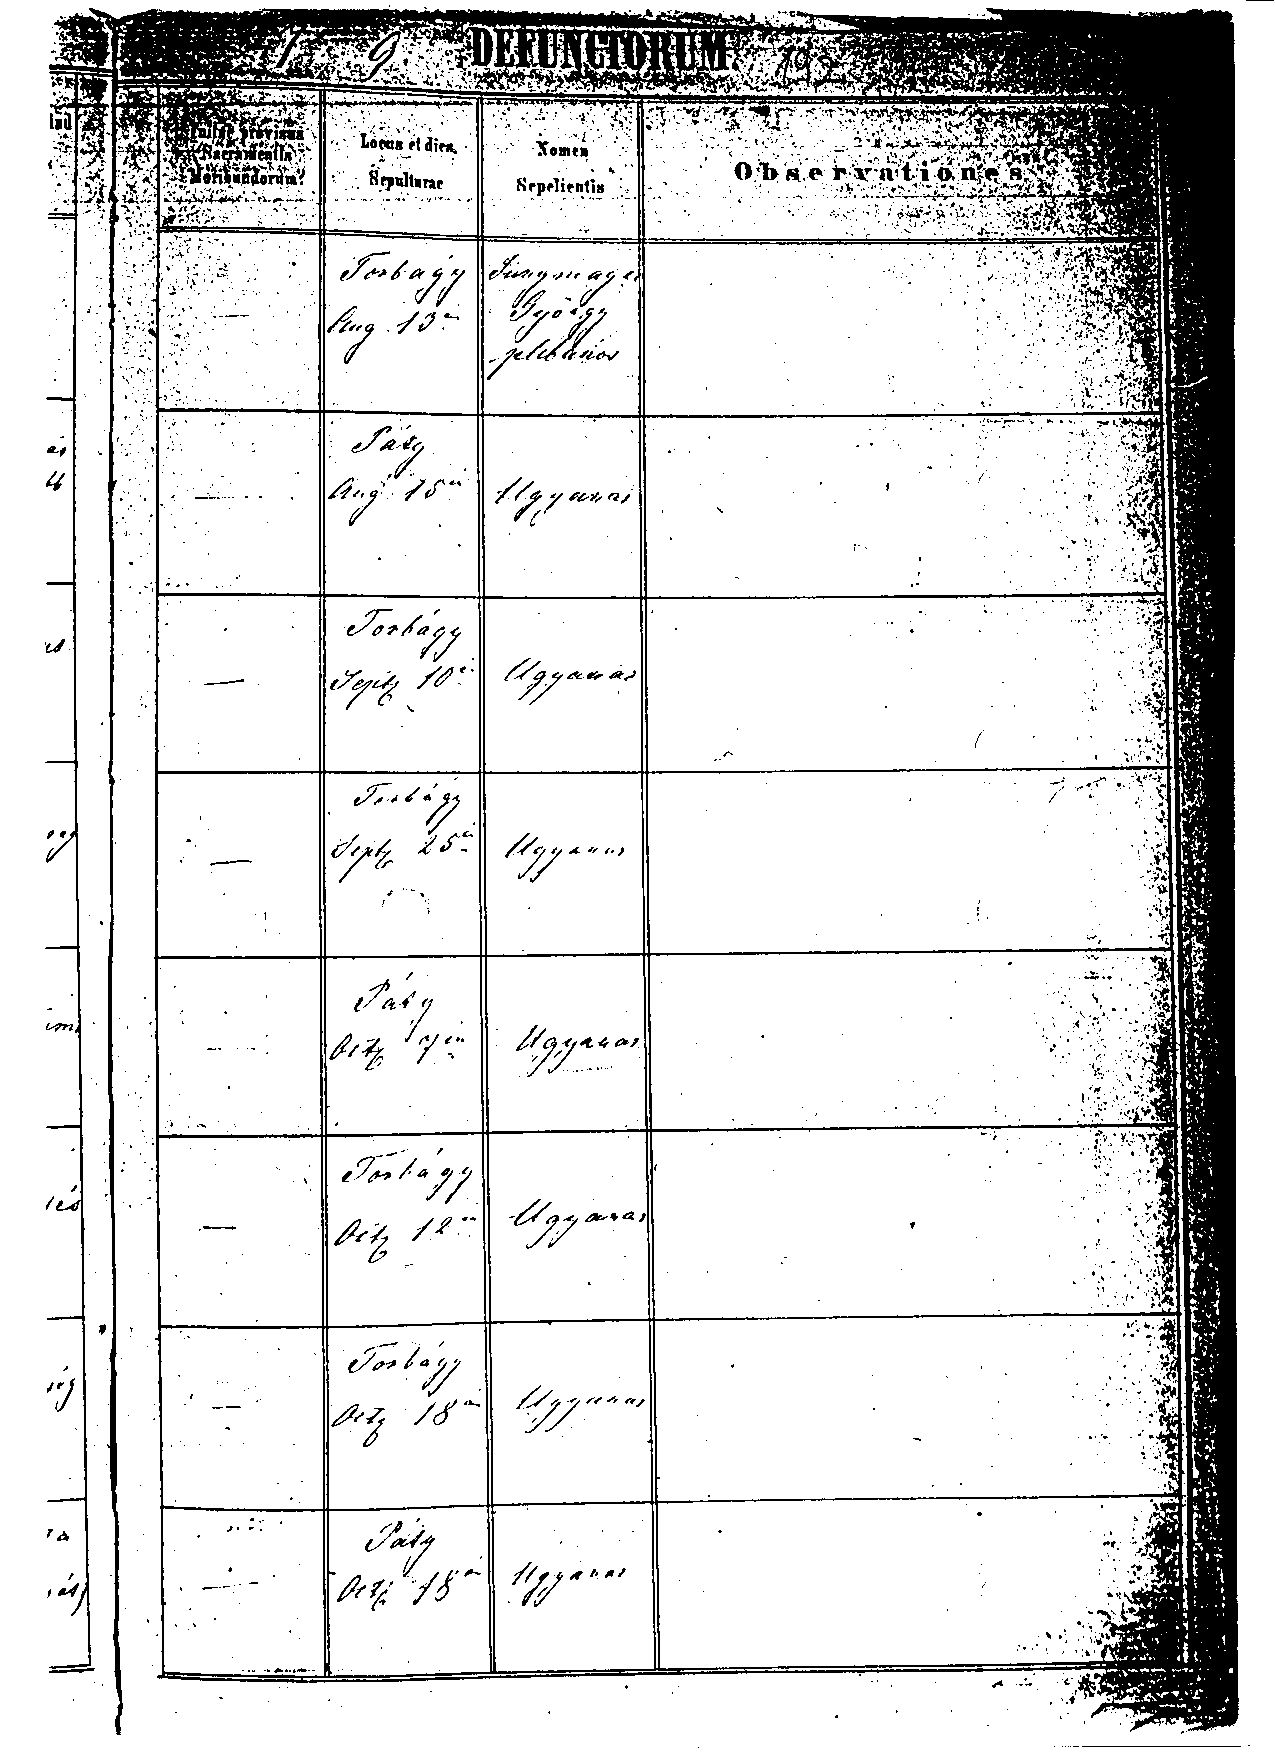 DEFUNCTORUM.
provisus
Sacramentis
Moribundorum?
Locus et dies
Sepulturae
Nomen
Sepelientis
Observationes
Torbágy
Aug 13án
György
plebános
Páty
Aug 15én
Ugyanaz
Torbágy
Septb 10én
Ugyanaz
Torbágy
Septb 25én
Ugyanaz
Páty
Octb 7én
Ugyanaz
Torbágy
Octb 12én
Ugyanaz
Torbágy
Octb 18án
Ugyanaz
Páty
Octb 18án
Ugyanaz